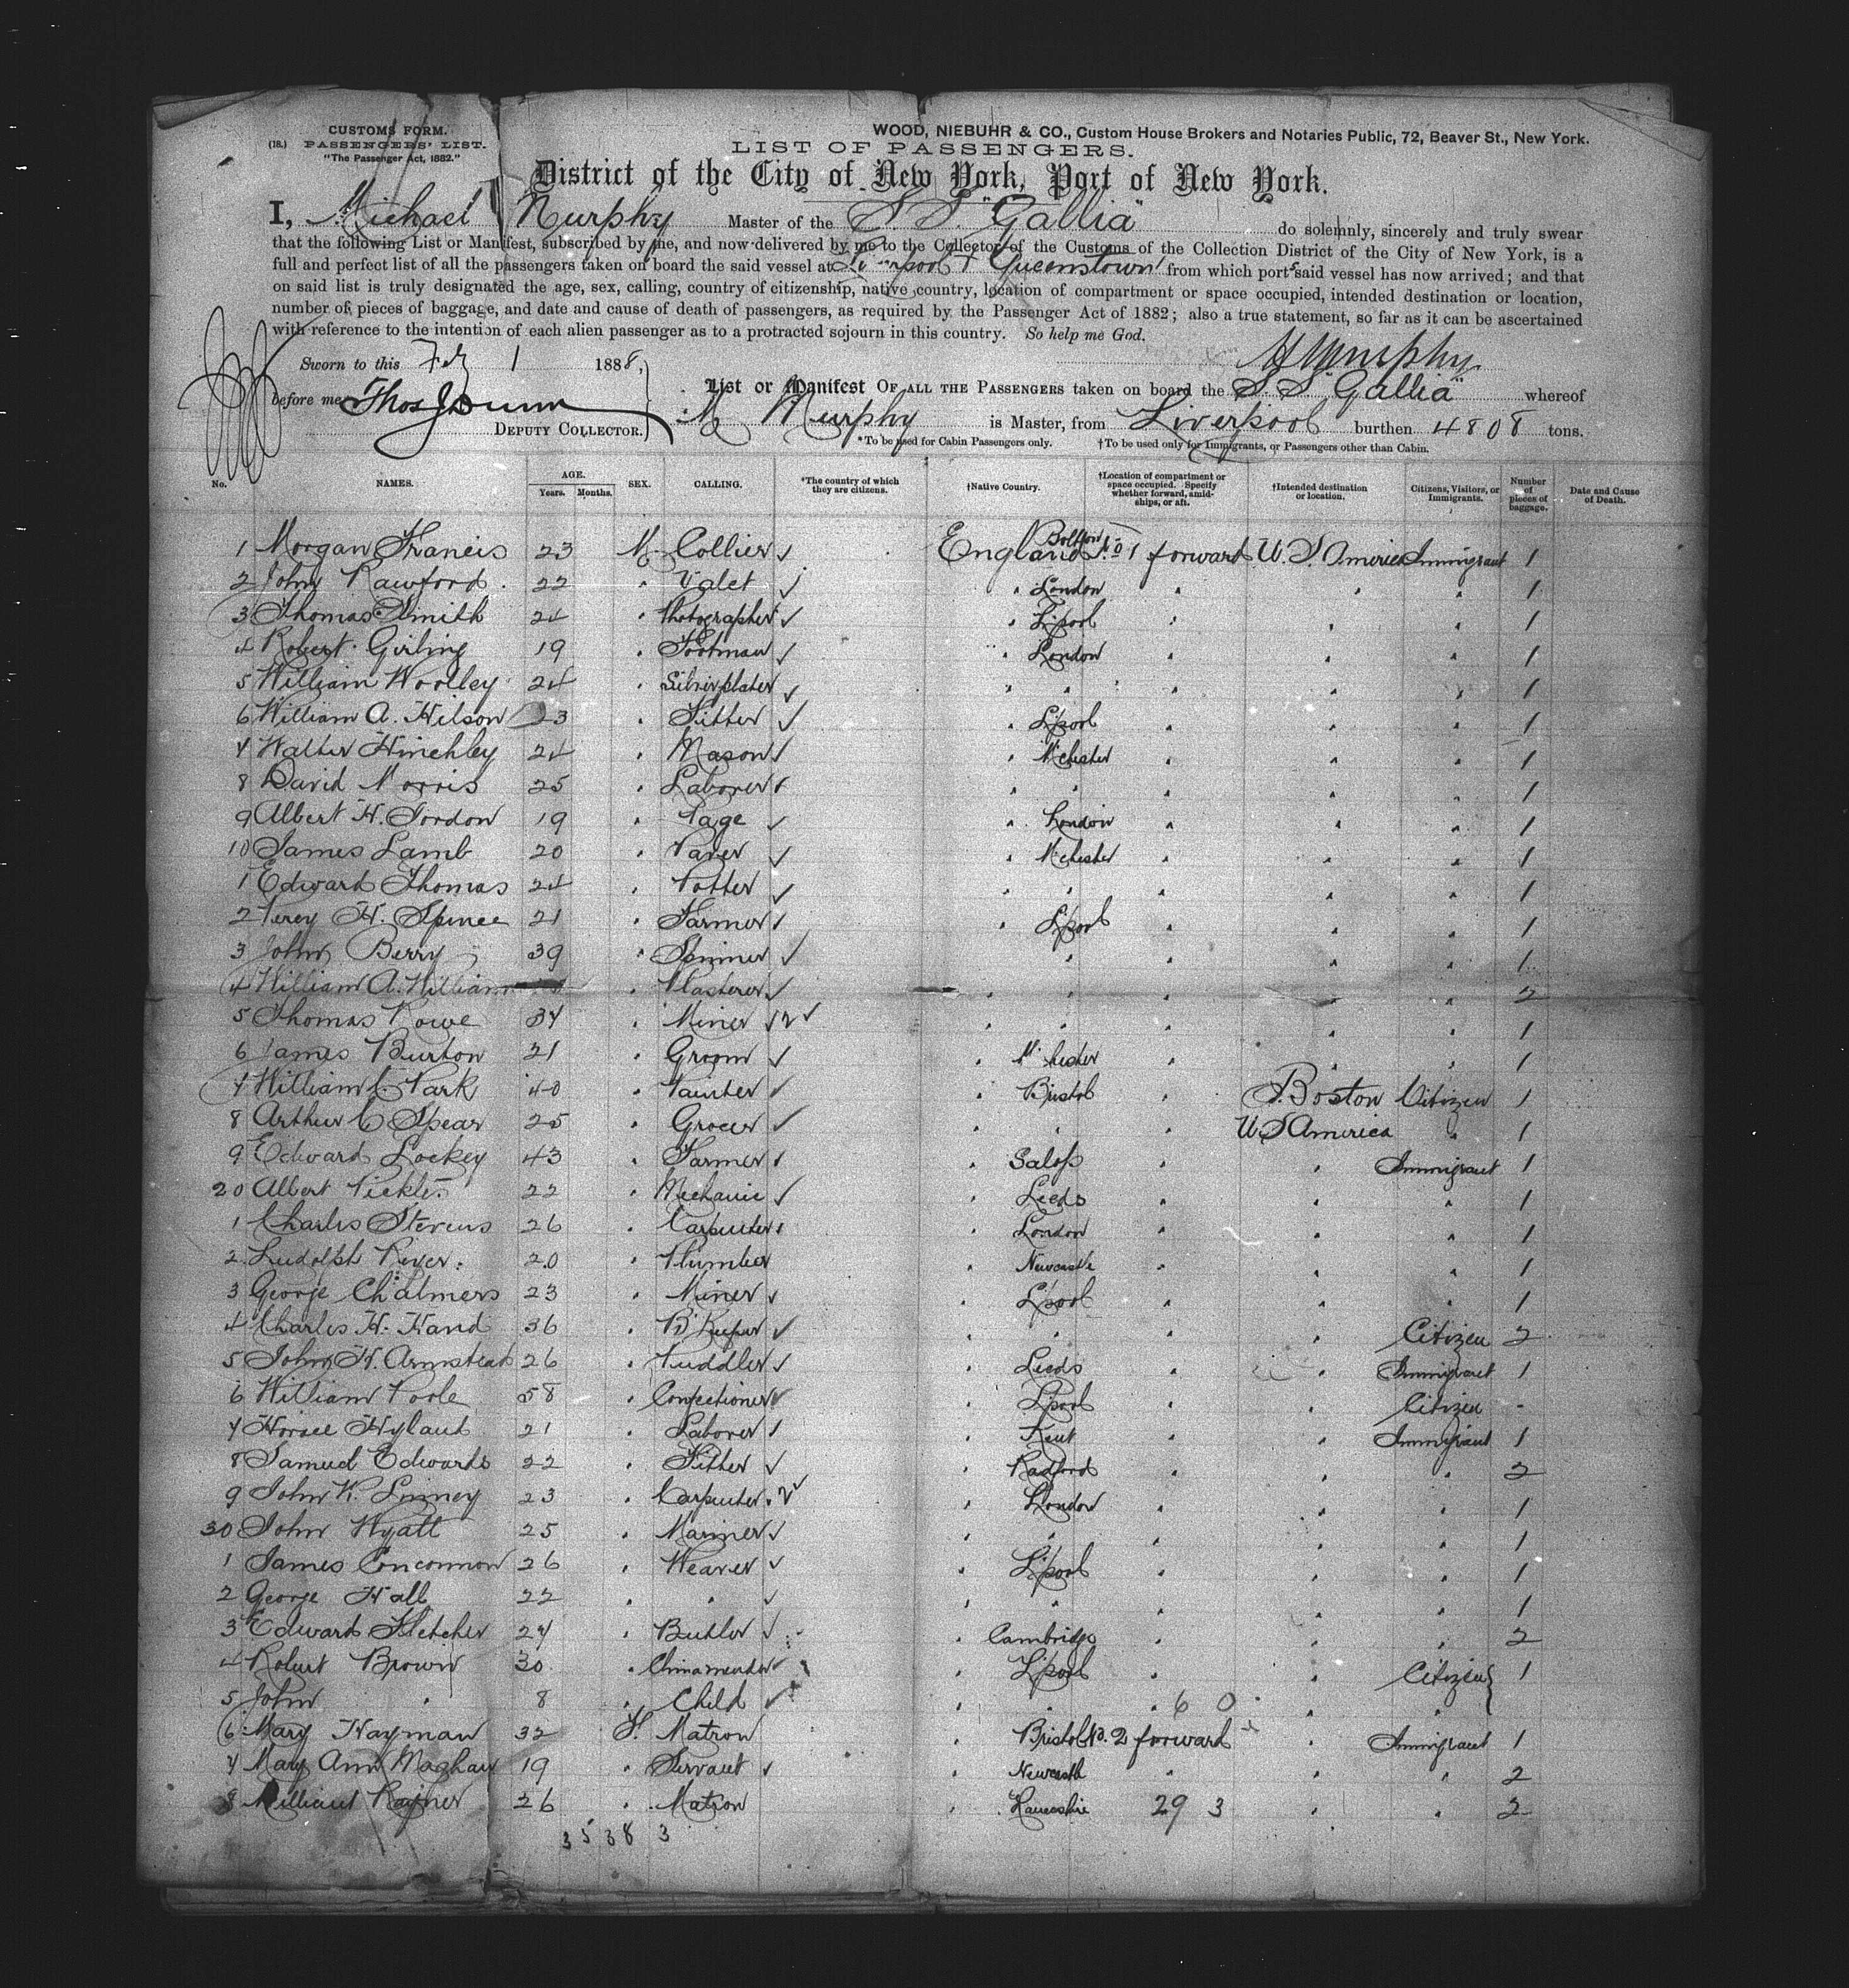 CUSTOMS FORM.
(18.) PASSENGERS' LIST.
"The Passenger Act, 1882."
WOOD, NIEBUHR & CO., Custom House Brokers and Notaries Public, 72, Beaver St., New York.
LIST OF PASSENGERS.
District of the City of New York, Port of New York.
I, Michael Murphy Master of the S. S. "Gallia" do solemnly, sincerely and truly swear
that the following List or Manifest, subscribed by me, and now delivered by me to the Collector of the Customs of the Collection District of the City of New York, is a
full and perfect list of all the passengers taken on board the said vessel at Liverpool + Queenstown from which ports said vessel has now arrived; and that
on said list is truly designated the age, sex, calling, country of citizenship, native country, location of compartment or space occupied, intended destination or location,
number of pieces of baggage, and date and cause of death of passengers, as required by the Passenger Act of 1882; also a true statement, so far as it can be ascertained
with reference to the intention of each alien passenger as to a protracted sojourn in this country. So help me God.
M Murphy
Sworn to this Feby 1 1888,
before me Thos J Dunn
DEPUTY COLLECTOR.
List or Manifest OF ALL THE PASSENGERS taken on board the S. S. "Gallia" whereof
M Murphy is Master, from Liverpool burthen 4808 tons.
*To be used for Cabin Passengers only. †To be used only for Immigrants, or Passengers other than Cabin.
No. NAMES. AGE. Years. Months. SEX. CALLING. *The country of which they are citizens. †Native Country. †Location of compartment or space occupied. Specify whether forward, amidships, or aft. †Intended destination or location. Citizens, Visitors, or Immigrants. Number of pieces of baggage. Date and Cause of Death.
1 Morgan Francis 23 M. Collier England Bolton No 1 forward U. S. America Immigrant 1
2 John Rawford 22 " Valet " London " " " 1
3 Thomas Smith 24 " Photographer " L'pool " " " 1
4 Robert Girling 19 " Footman " London " " " 1
5 William Woolley 24 " Silverplater " " " " " 1
6 William A. Hilson 23 " Fitter " L'pool " " " 1
7 Walter Hinchley 24 " Mason " M'chester " " " 1
8 David Morris 25 " Laborer " " " " " 1
9 Albert H. Tordon 19 " Page " London " " " 1
10 James Lamb 20 " Paver " M'chester " " " 1
1 Edward Thomas 24 " Potter " " " " " 1
2 Percy H. Spence 21 " Farmer " L'pool " " " 1
3 John Berry 39 " Spinner " " " " 1
4 William A. William " Plasterer " " " " " 2
5 Thomas Rowe 37 " Miner " " " " " 1
6 James Burton 21 " Groom " M'chester " " " 1
7 William C. Park 40 " Painter " Bristol " Boston Citizen 1
8 Arthur C Spear 25 " Grocer " " " U S America " 1
9 Edward Lockey 43 " Farmer " Salop " " Immigrant 1
20 Albert Pickles 22 " Mechanic " Leeds " " " 1
1 Charles Stevens 26 " Carpenter " London " " " 1
2 Ludolph River 20 " Plumber " Newcastle " " " 1
3 George Chalmers 23 " Miner " L'pool " " " 1
4 Charles H. Hand 36 " B'Keeper " " " " Citizen 2
5 John H. Armstead 26 " Puddler " Leeds " " Immigrant 1
6 William Poole 58 " Confectioner " L'pool " " Citizen -
7 Horace Hyland 21 " Laborer " Kent " " Immigrant 1
8 Samuel Edwards 22 " Fitter " Radford " " " 2
9 John K. Linney 23 " Carpenter " London " " " 1
30 John Wyatt 25 " Mariner " " " " " 1
1 James Concannon 26 " Weaver " L'pool " " " 1
2 George Hall 22 " " " " " " " 1
3 Edward Fletcher 27 " Butler " Cambridge " " " 2
4 Robert Brown 30 " Chinamender " L'pool " " Citizen 1
5 John " 8 " Child " " " " "
6 0
6 Mary Hayman 32 F. Matron " Bristol No. 2 forward " Immigrant 1
7 Mary Ann Maghan 19 " Servant " Newcastle " " " 2
8 Millicent Rayner 26 " Matron " Lancashire " " 2
29 3
3 5 3 8 3